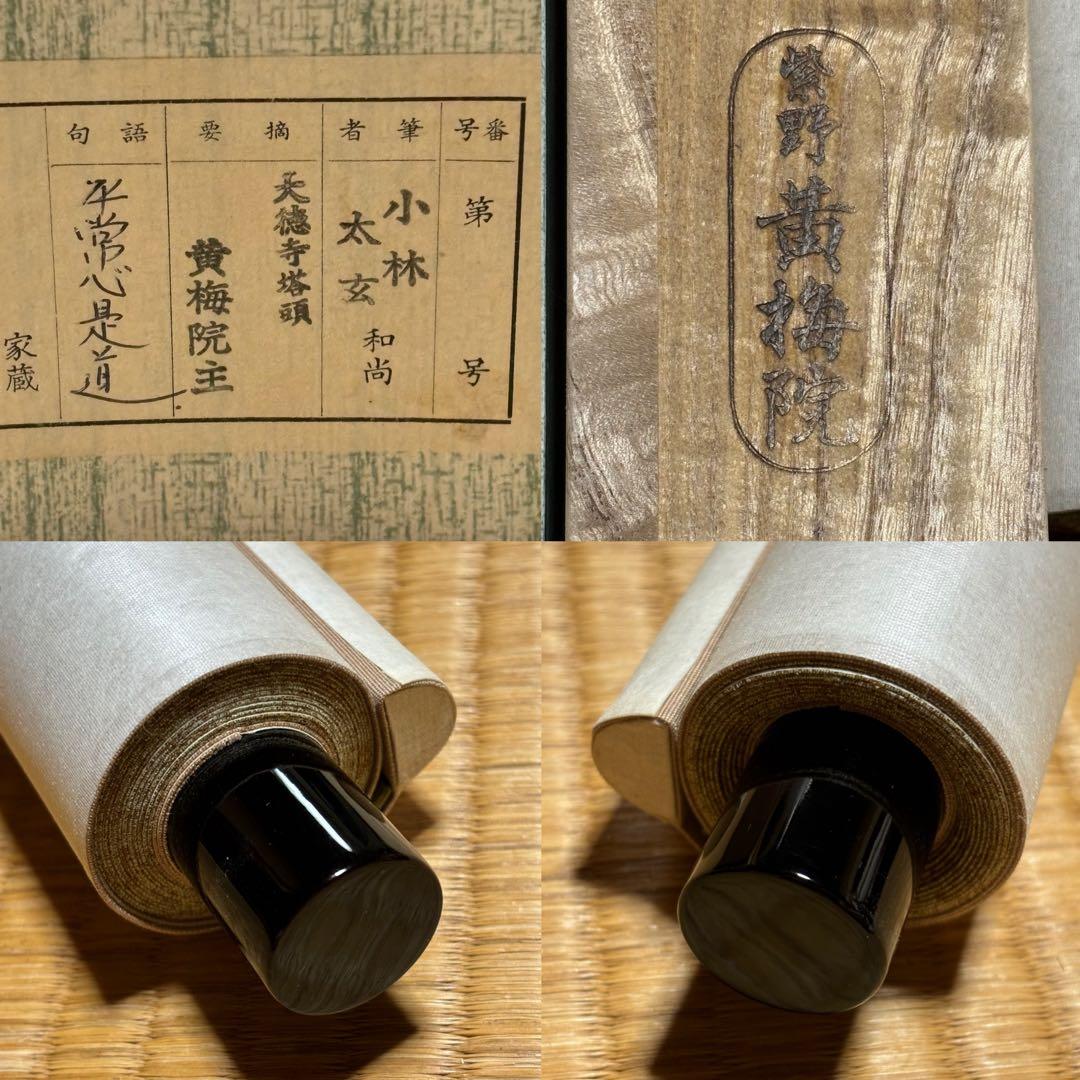 番号
第 号
筆者
小林
太玄
和尚
摘要
大徳寺塔頭
黄梅院主
語句
平常心是道
家蔵
紫野黄梅院